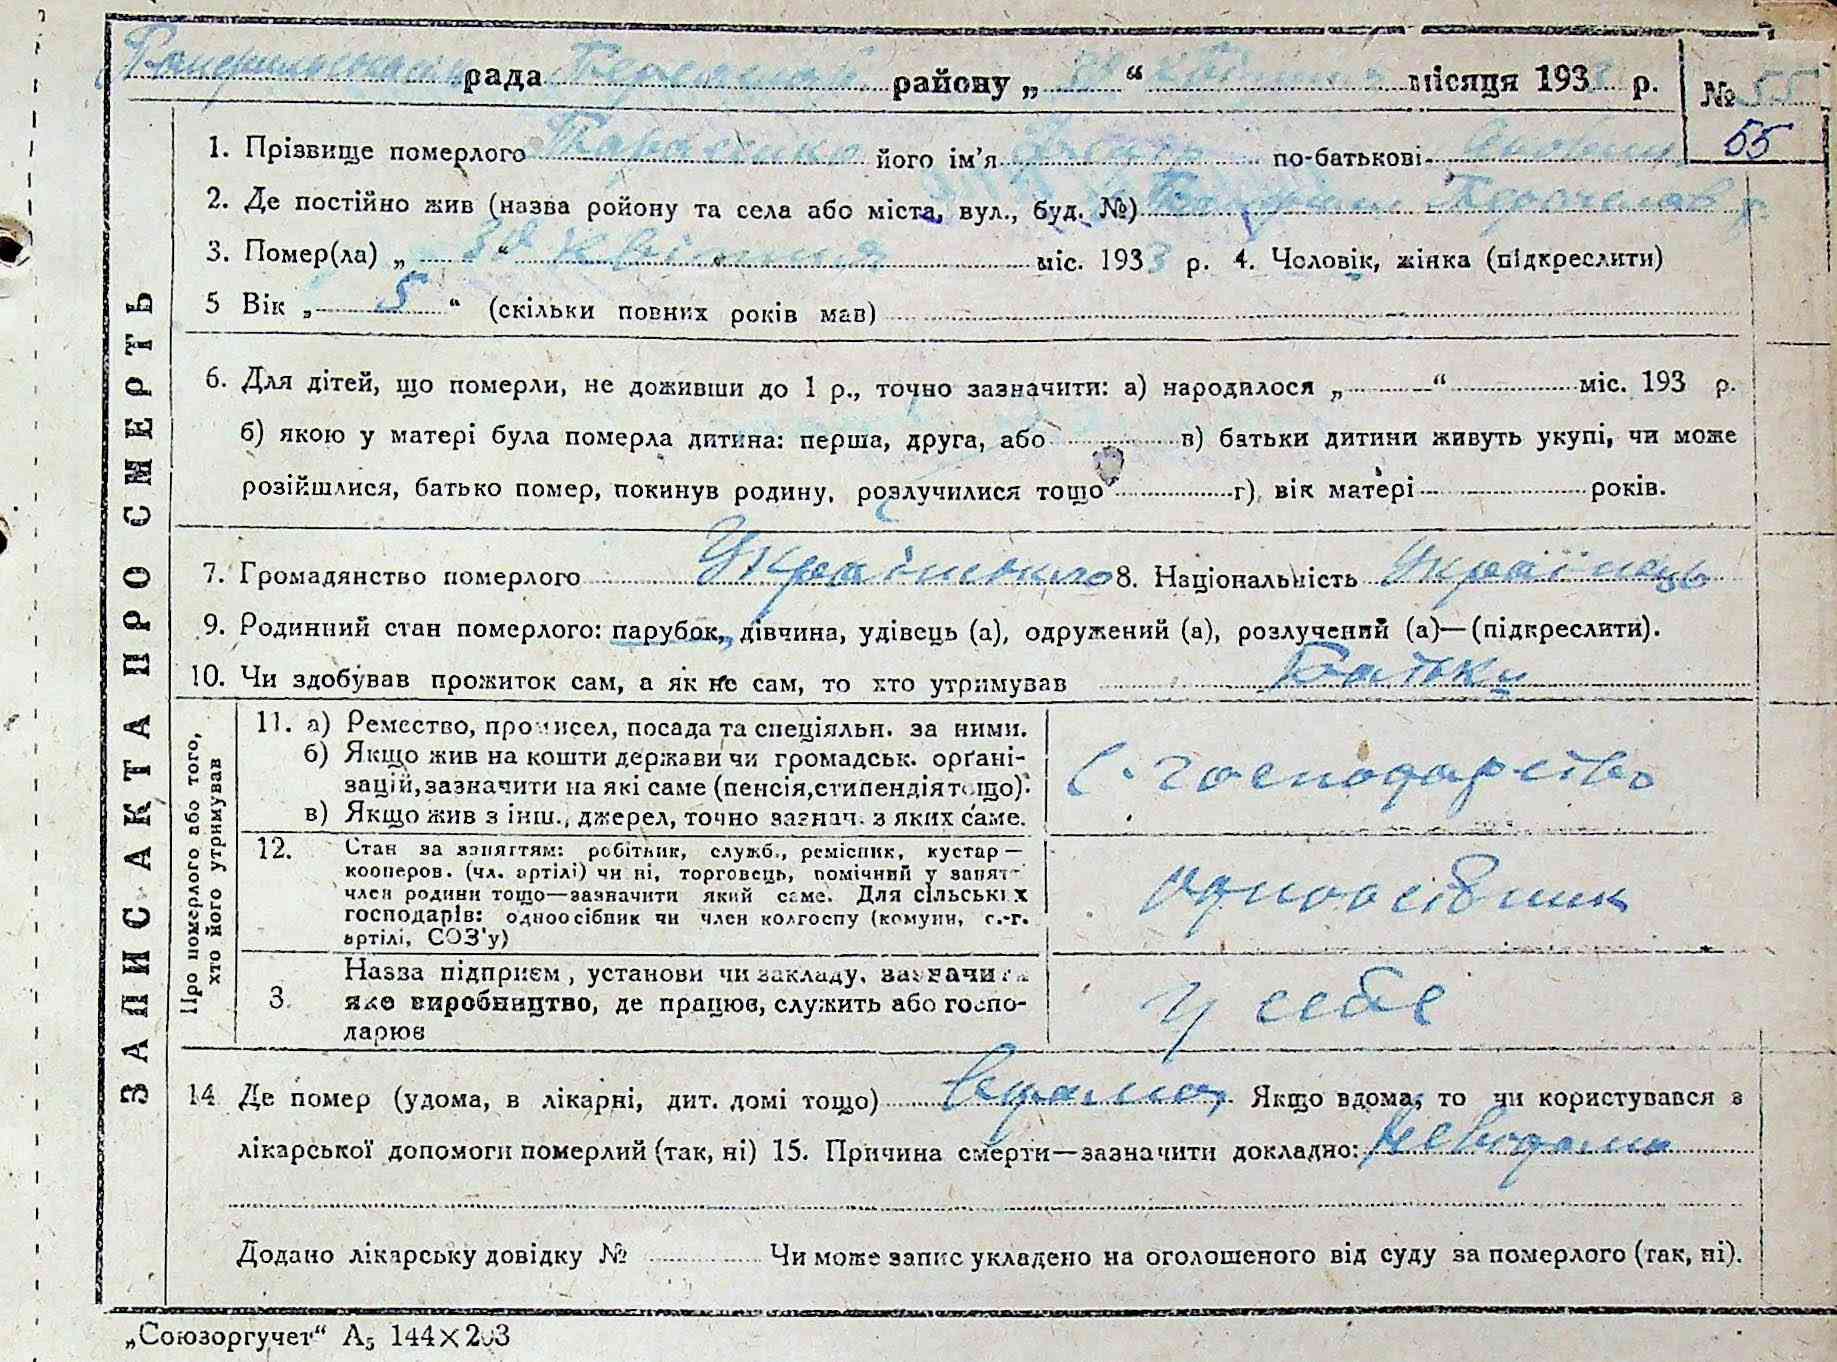 рада району „ “ квітня місяця 1933 р. № 55
55
1. Прізвище померлого Тарасенко його ім'я по-батькові
2. Де постійно жив (назва ройону та села або міста, вул., буд. №)
3. Помер(ла) „ 3 “ квітня міс. 1933 р. 4. Чоловік, жінка (підкреслити)
5 Вік „ 5 “ (скільки повних років мав)
6. Для дітей, що померли, не доживши до 1 р., точно зазначити: а) народилося „ “ міс. 193 р.
б) якою у матері була померла дитина: перша, друга, або в) батьки дитини живуть укупі, чи може
розійшлися, батько помер, покинув родину, розлучилися тощо г) вік матері років.
7. Громадянство померлого Українською 8. Національність Українець
9. Родинний стан померлого: парубок, дівчина, удівець (а), одружений (а), розлучений (а)—(підкреслити).
10. Чи здобував прожиток сам, а як не сам, то хто утримував Батьки
11. а) Ремество, промисел, посада та спеціяльн. за ними.
б) Якщо жив на кошти держави чи громадськ. орґані-
зацій, зазначити на які саме (пенсія, стипендія тощо).
в) Якщо жив з інш., джерел, точно зазнач. з яких саме.
С. господарство
12. Стан за заняттям: робітник, служб., ремісник, кустар—
кооперов. (чл. артілі) чи ні, торговець, помічний у занят-
член родини тощо—зазначити який саме. Для сільських
господарів: одноосібник чи член колгоспу (комуни, с.-г.
артілі, СОЗ'у)
одноосібник
3. Назва підприєм, установи чи закладу, зазначити
яке виробництво, де працює, служить або госпо-
дарює
у себе
14 Де помер (удома, в лікарні, дит. домі тощо) вдома, Якщо вдома, то чи користувався з
лікарської допомоги померлий (так, ні) 15. Причина смерти—зазначити докладно: невідома
Додано лікарську довідку № Чи може запис укладено на оголошеного від суду за померлого (так, ні).
ЗАПИС АКТА ПРО СМЕРТЬ
Про померлого або того,
хто його утримував
„Союзоргучет“ А5 144×203